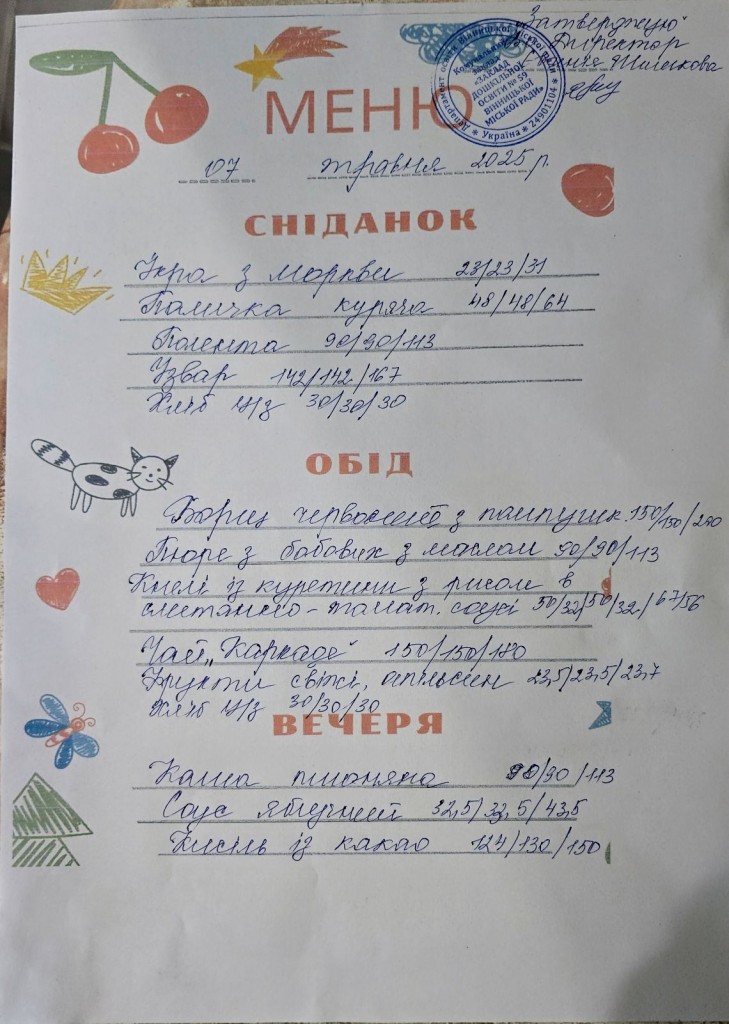 "Затверджую"
Директор
МЕНЮ
Департамент освіти Вінницької міської ради
Комунальний заклад «ЗАКЛАД ДОШКІЛЬНОЇ ОСВІТИ № 59 ВІННИЦЬКОЇ МІСЬКОЇ РАДИ»
* Україна * 24901104 *
07 травня 2025 р.
СНІДАНОК
Ікра з моркви 23/23/31
Паличка куряча 48/48/64
Полента 90/90/113
Узвар 142/142/167
Хліб ц/з 30/30/30
ОБІД
Борщ червоний з пампушк. 150/150/200
Пюре з бобових з маслом 90/90/113
Кнелі із курятини з рисом в
сметанно-томат. соусі 50/32/50/32/67/56
Чай „Каркаде" 150/150/180
Фрукти свіжі, апельсин 23,5/23,5/23,7
Хліб ц/з 30/30/30
ВЕЧЕРЯ
Каша пшоняна 90/90/113
Соус яблучний 32,5/32,5/43,5
Кисіль із какао 124/130/150